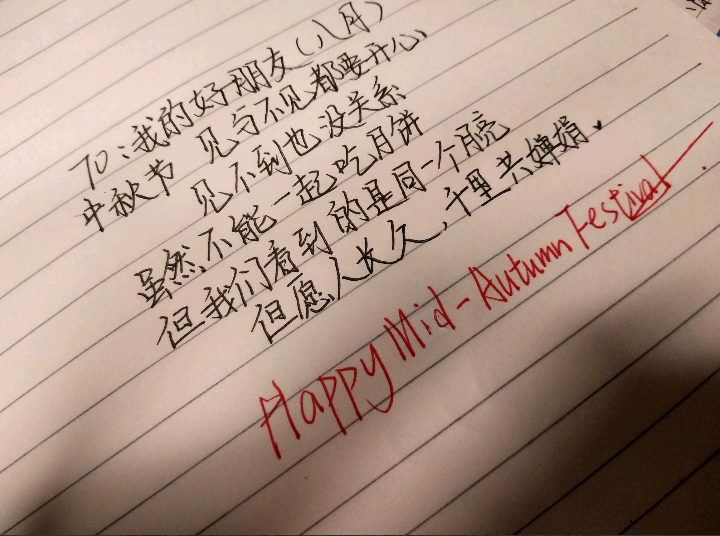 TO：我的好朋友（八月）
中秋节 见与不见都要开心
见不到也没关系
虽然不能一起吃月饼
但我们看到的是同一个月亮
但愿人长久，千里共婵娟.
Happy Mid-Autumn Festival.